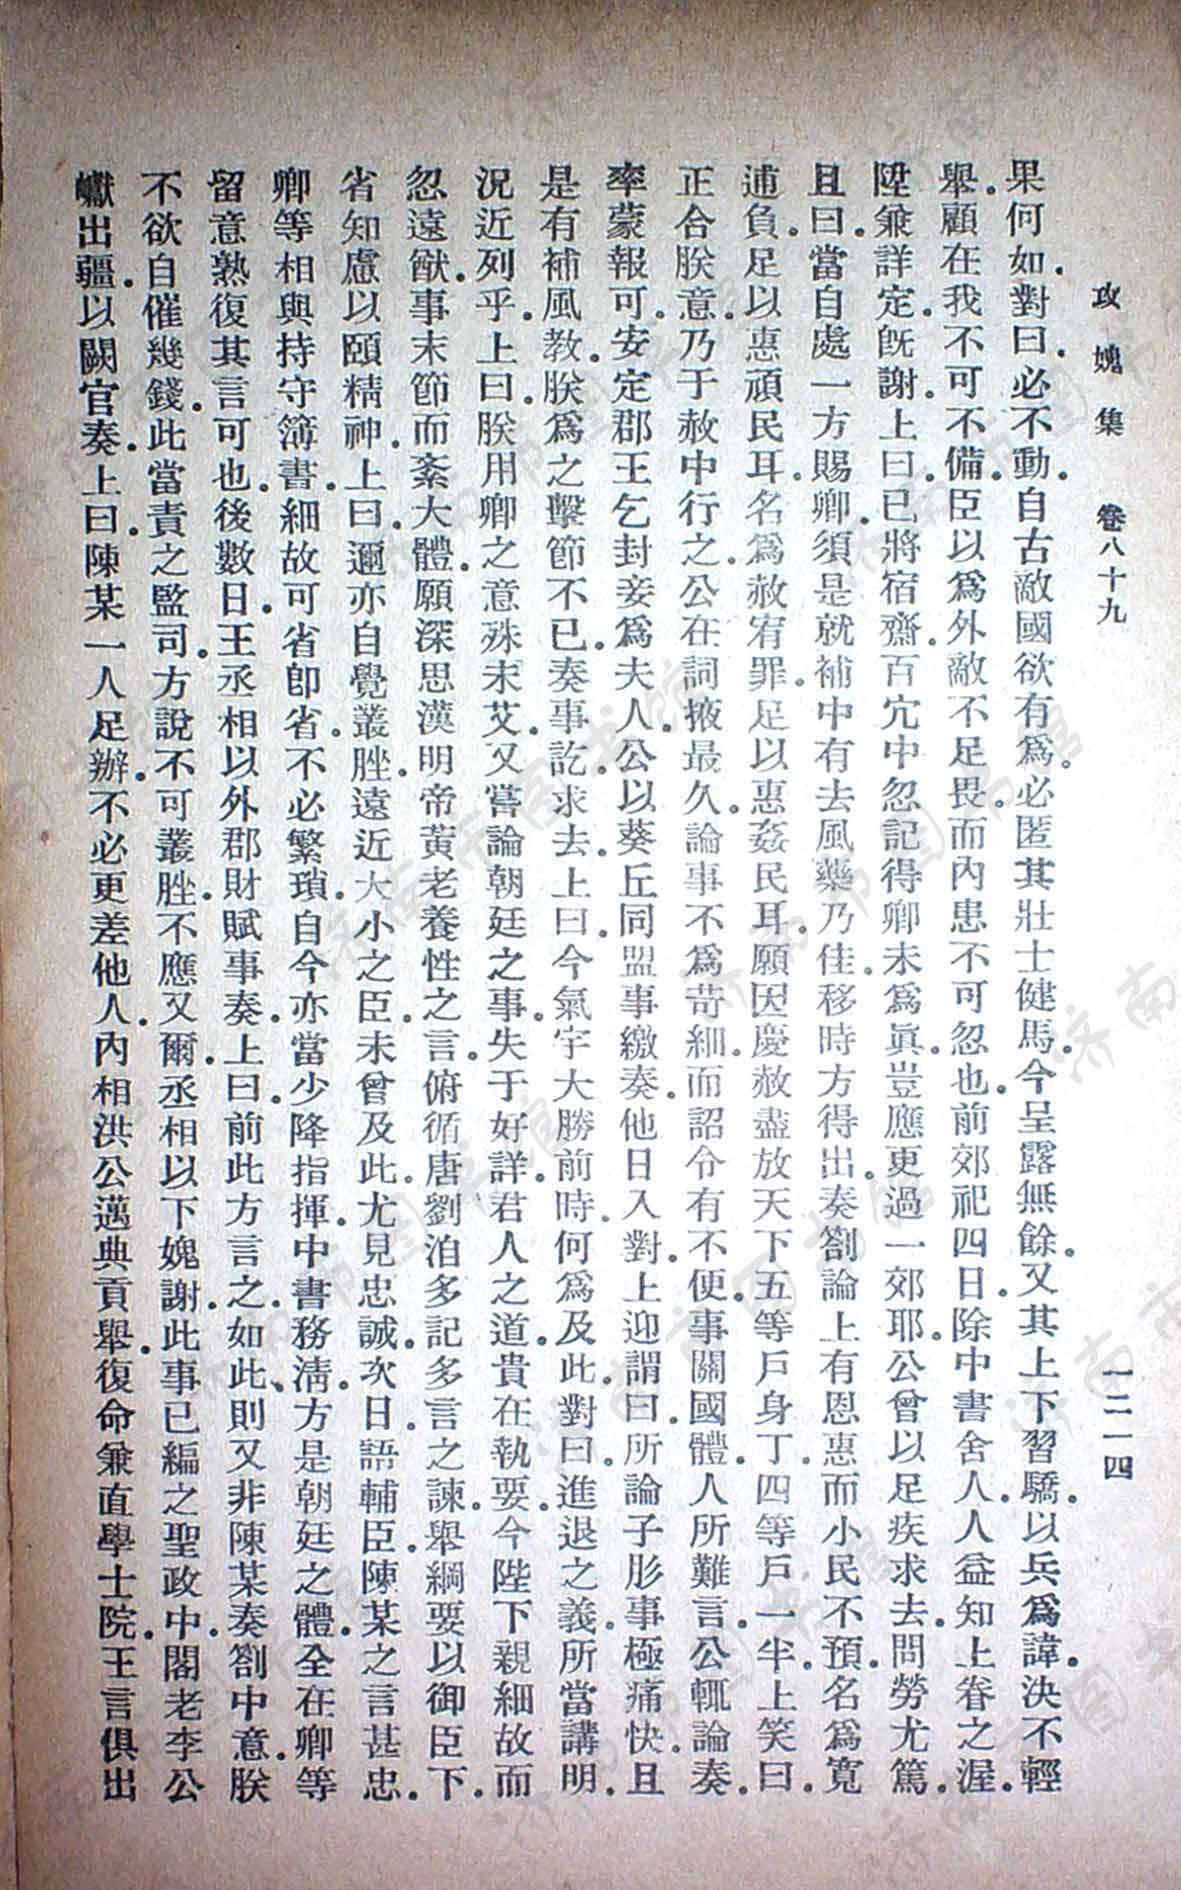 攻媿集　卷八十九　一二一四
果何如.對曰.必不動.自古敵國欲有爲.必匿其壯士健馬.今呈露無餘.又其上下習驕.以兵爲諱.決不輕
舉.顧在我不可不備.臣以爲外敵不足畏.而內患不可忽也.前郊祀四日.除中書舍人.人益知上眷之渥.
陞兼詳定.旣謝.上曰.已將宿齋.百宂中忽記得卿未爲眞.豈應更過一郊耶.公曾以足疾求去.問勞尤篤.
且曰.當自處一方賜卿.須是就補中有去風藥乃佳.移時方得出.奏劄論上有恩惠而小民不預.名爲寬
逋負.足以惠頑民耳.名爲赦宥罪.足以惠姦民耳.願因慶赦盡放天下五等戶身丁.四等戶一半.上笑曰.
正合朕意.乃于赦中行之.公在詞掖最久.論事不爲苛細.而詔令有不便.事關國體.人所難言.公輒論奏.
率蒙報可.安定郡王乞封妾爲夫人.公以葵丘同盟事繳奏.他日入對.上迎謂曰.所論子肜事極痛快.且
是有補風敎.朕爲之擊節不已.奏事訖.求去.上曰.今氣宇大勝前時.何爲及此.對曰.進退之義.所當講明.
況近列乎.上曰.朕用卿之意殊未艾.又嘗論朝廷之事.失于好詳.君人之道.貴在執要.今陛下親細故而
忽遠猷.事末節而紊大體.願深思漢明帝黃老養性之言.俯循唐劉泊多記多言之諫.舉綱要以御臣下.
省知慮以頤精神.上曰.邇亦自覺叢脞.遠近大小之臣.未曾及此.尤見忠誠.次日.語輔臣.陳某之言甚忠.
卿等相與持守簿書.細故可省卽省.不必繁瑣.自今亦當少降指揮.中書務淸.方是朝廷之體.全在卿等
留意熟復其言可也.後數日.王丞相以外郡財賦事奏.上曰.前此方言之.如此.則又非陳某奏劄中意.朕
不欲自催幾錢.此當責之監司.方說不可叢脞.不應又爾.丞相以下媿謝.此事已編之聖政中.閣老李公
巘出疆.以闕官奏.上曰.陳某一人足辦.不必更差他人.內相洪公邁典貢舉.復命兼直學士院.王言俱出